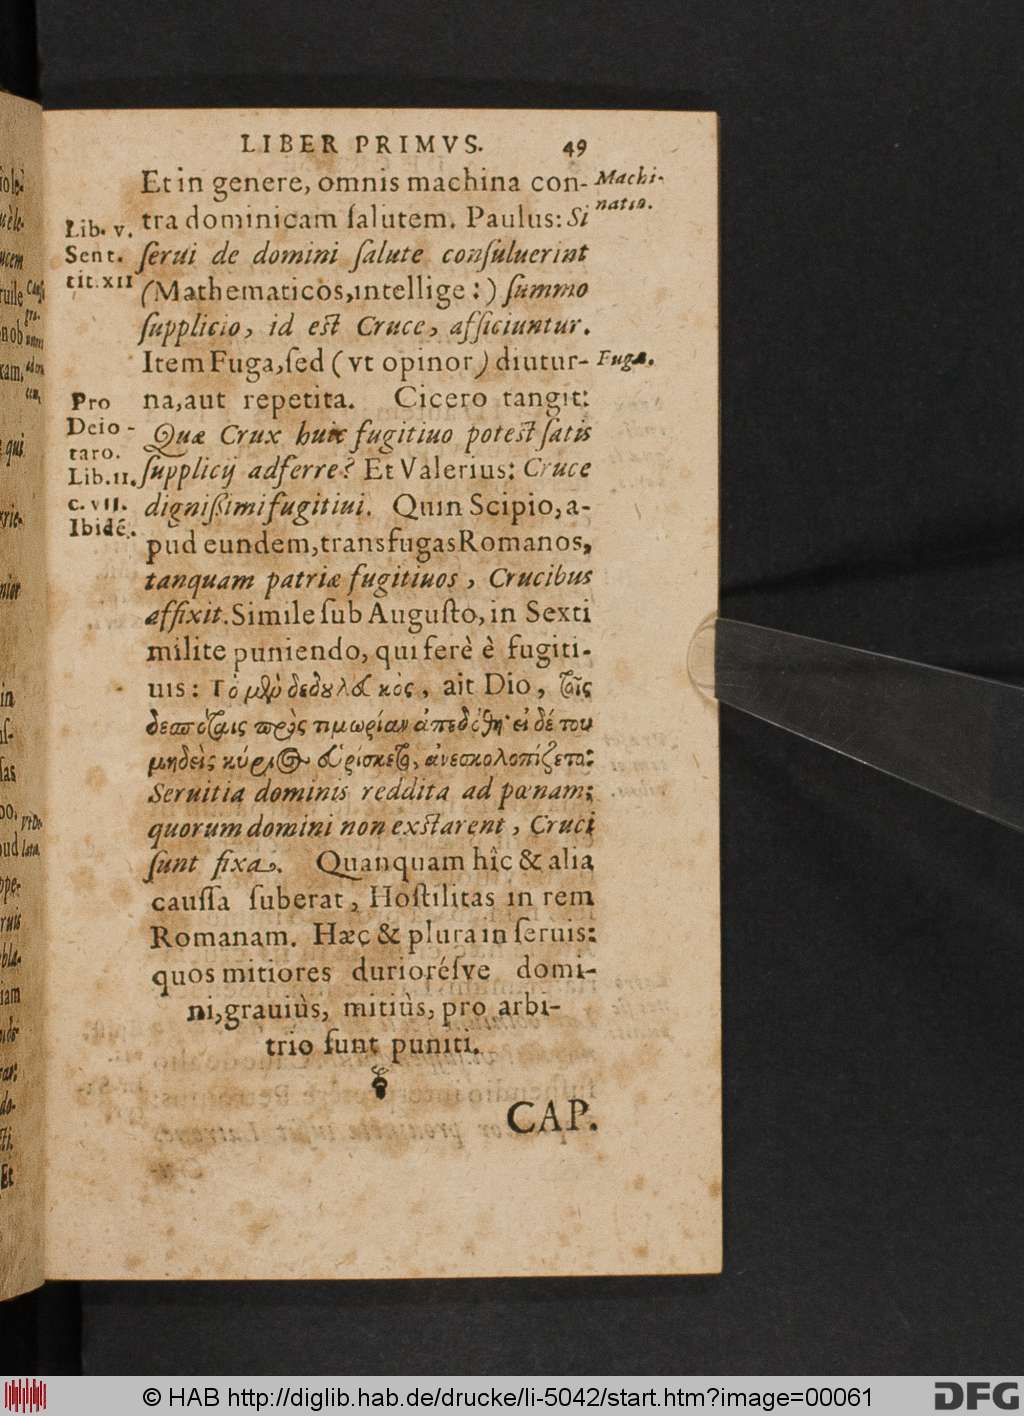 LIBER PRIMVS. 49
Et in genere, omnis machina con-
Machi-
natio.
Lib. v.
Sent.
tit. XII
tra dominicam ſalutem. Paulus: Si
ſerui de domini ſalute conſuluerint
(Mathematicos, intellige:) ſummo
ſupplicio, id eſt Cruce, afficiuntur.
Item Fuga, ſed (vt opinor) diutur-
Fuga.
na, aut repetita. Cicero tangit:
Pro
Deio-
taro.
Lib. II.
c. VII.
Ibidē.
Quæ Crux huic fugitiuo poteſt ſatis
ſupplicij adferre? Et Valerius: Cruce
digniſſimi fugitiui. Quin Scipio, a-
pud eundem, transfugas Romanos,
tanquam patriæ fugitiuos, Crucibus
affixit. Simile ſub Auguſto, in Sexti
milite puniendo, qui ferè è fugiti-
uis: Τὸ μὲν δεδουλευκὸς, ait Dio, τοῖς
δεσπόταις πρὸς τιμωρίαν ἀπεδόθη· εἰ δέ του
μηδεὶς κύριος εὑρίσκετο, ἀνεσκολοπίζετο:
Seruitia dominis reddita ad pœnam;
quorum domini non exſtarent, Cruci
ſunt fixa. Quanquam hîc & alia
cauſſa ſuberat, Hoſtilitas in rem
Romanam. Hæc & plura in ſeruis:
quos mitiores durioréſve domi-
ni, grauiùs, mitiùs, pro arbi-
trio ſunt puniti.
CAP.
© HAB http://diglib.hab.de/drucke/li-5042/start.htm?image=00061
DFG